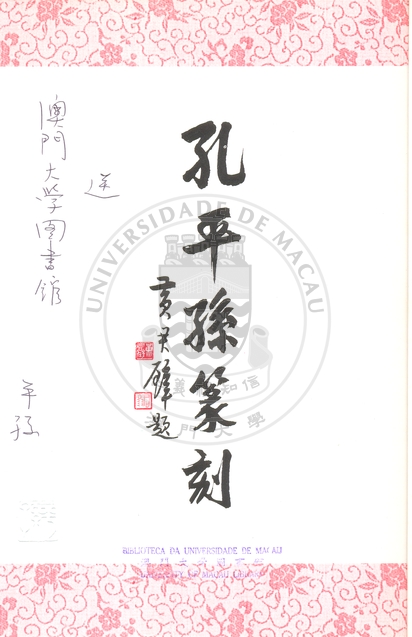 送
澳門大学図書館
平孫
孔平孫篆刻
黃君璧題
UNIVERSIDADE DE MACAU
仁義禮知信
澳門大學
BIBLIOTECA DA UNIVERSIDADE DE MACAU
澳門大學圖書館
UNIVERSITY OF MACAU LIBRARY